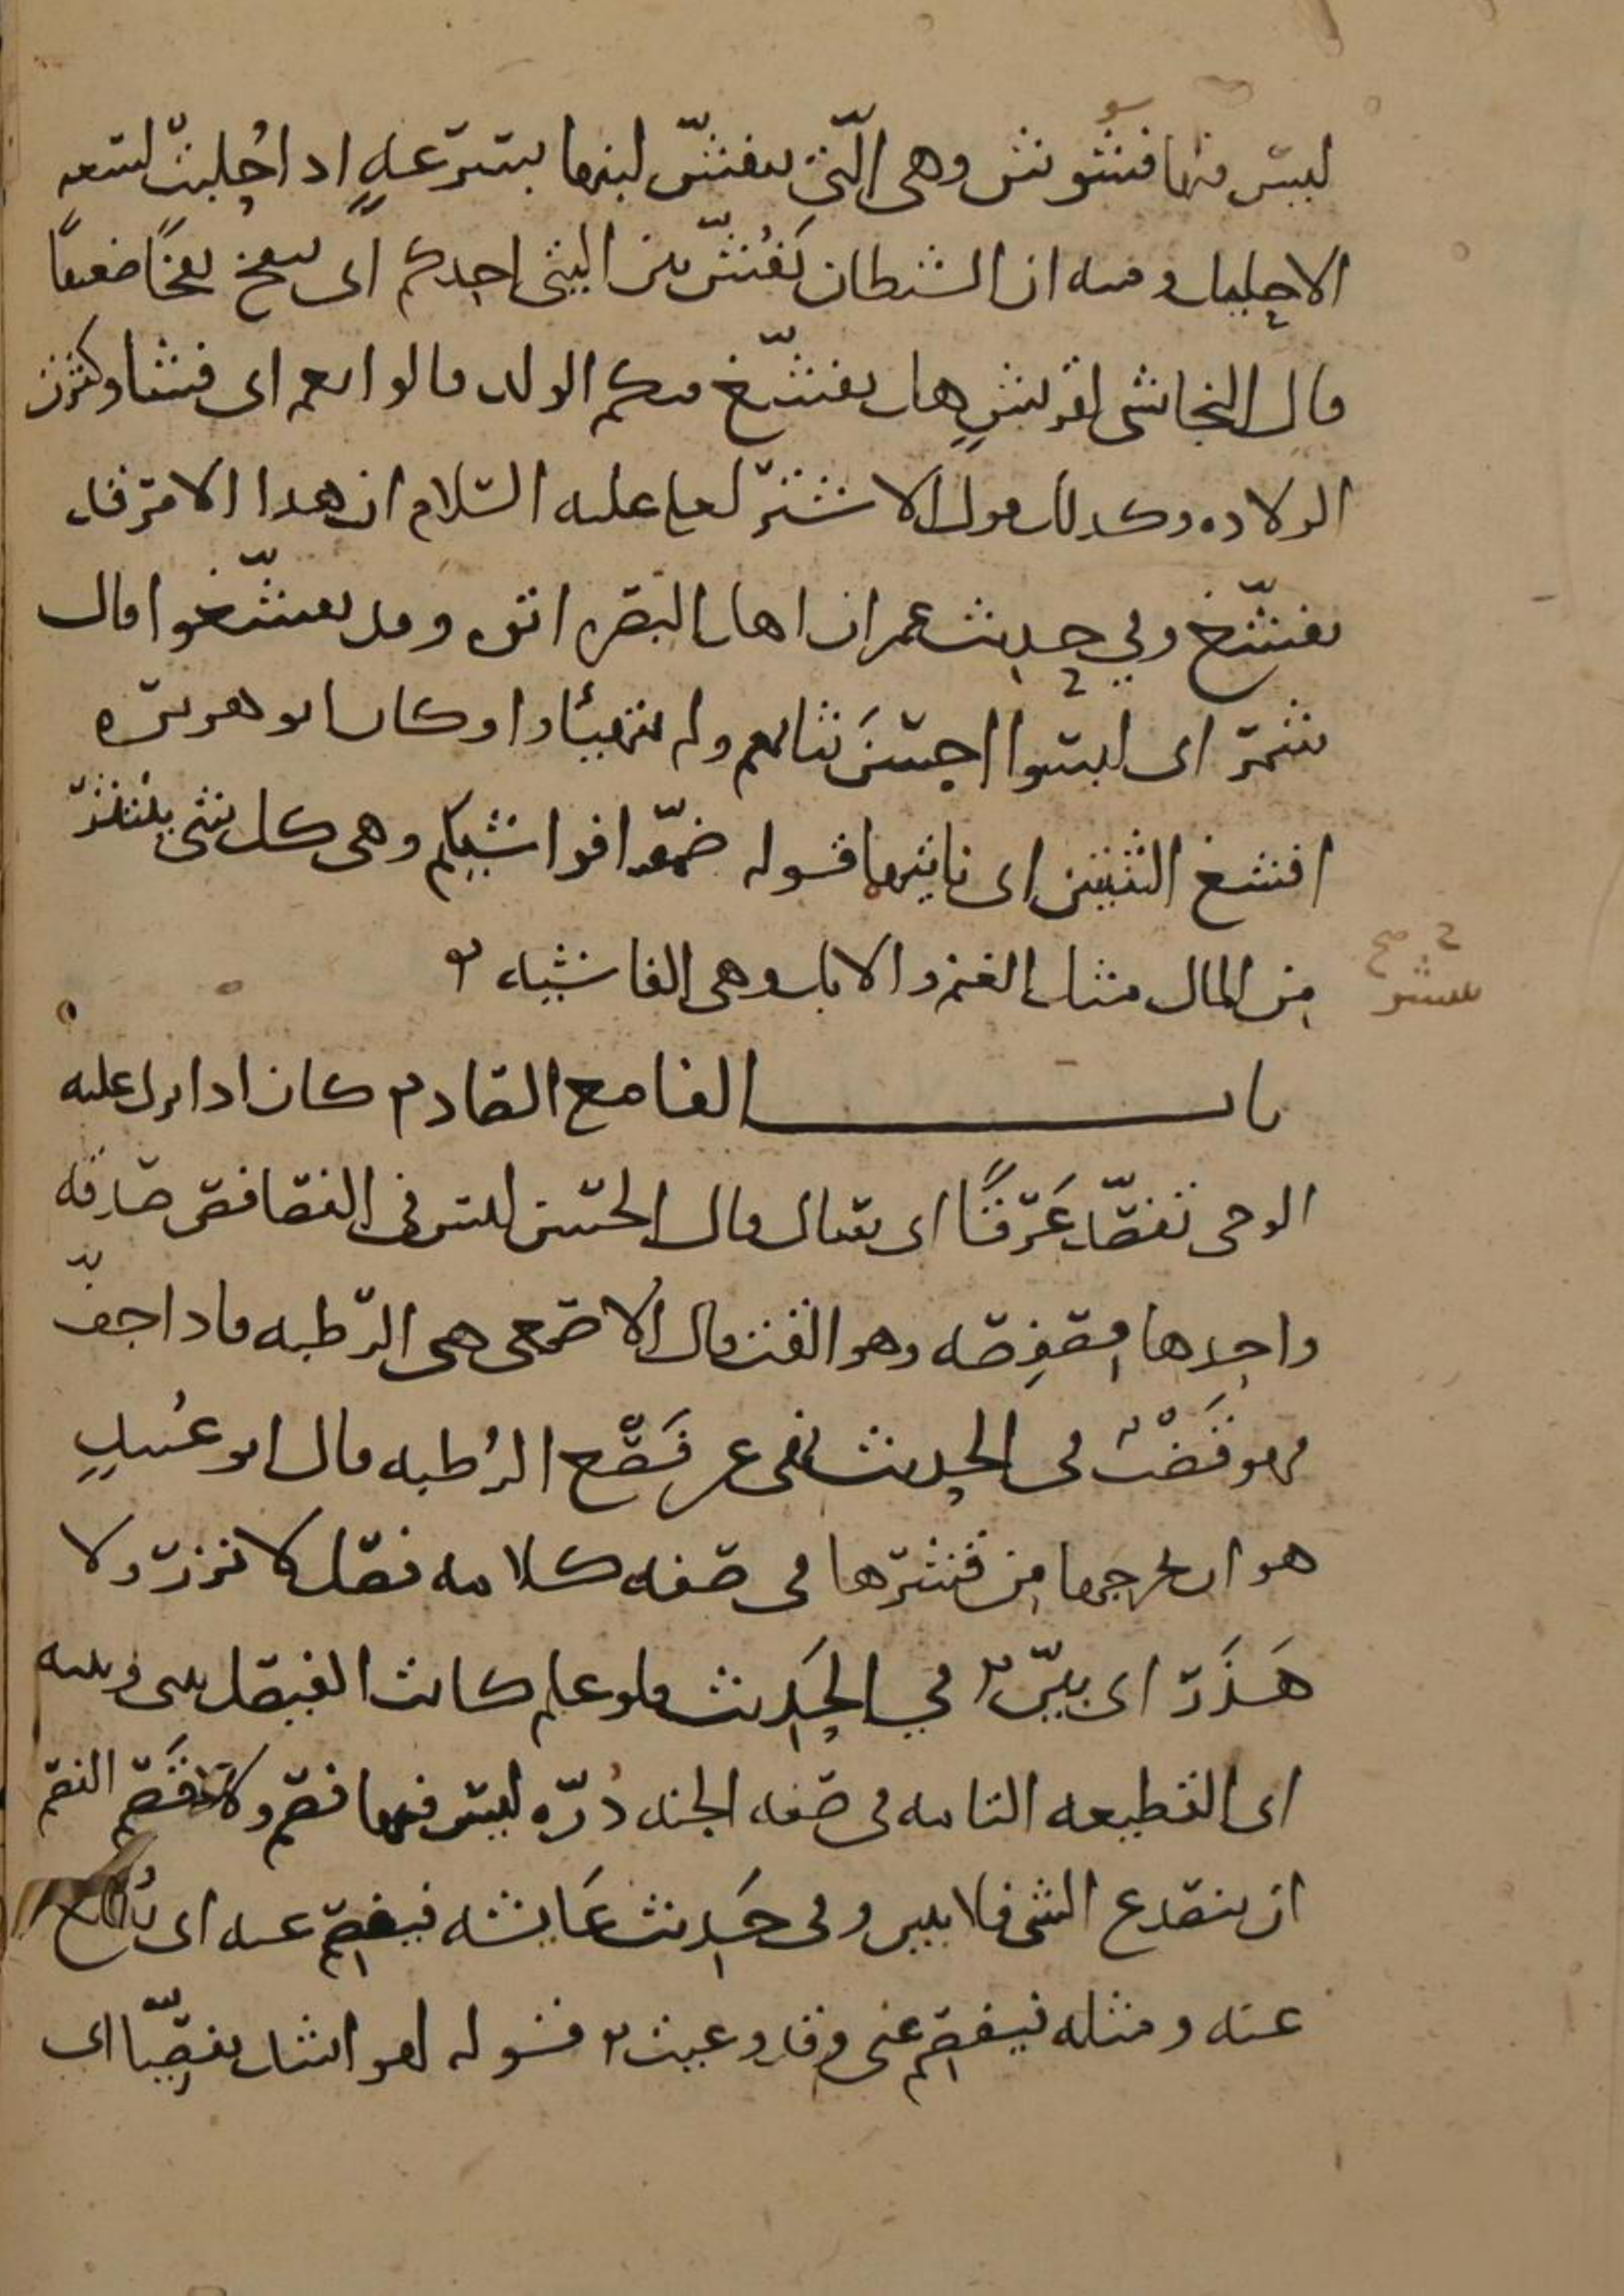 ليس منها فشوش وهي التي ينفشّ لبنها بسرعةٍ اذا حُلبت لسعه
الاحليل ومنه ان الشيطان يَفُشّ بين اليتي احدكم اي ينفخ نفخًا ضعيفًا
قال النجاشي لقريشٍ هل تفشّغ فيكم الولد قالوا نعم اي فشا وكثرت
الولاده وكذلك قول الاشتر لعلي عليه السلام ان هذا الامر قد
تفشّغ وفي حديث عمر ان اهل البصره اتوه وقد تفشّغوا فقال
شمر اي لبسوا اخسّ ثيابهم ولم يتهيئاوا وكان ابو هريره
افشغ الثنيتين اي ناتيهما قوله ضمّوا فواشيكم وهي كل شي ينتشر
من المال مثل الغنم والابل وهي الفاشيه
باب الفا مع الصاد كان اذا نزل عليه
الوحي تفصّد عَرَقًا اي سال قال الحسن ليس في الفصافص صدقه
واحدها فِصفِصه وهو القت قال الاصمعي هي الرطبه فاذا جفّ
فهو قَضْب في الحديث نهى عن فَصْع الرُطبه قال ابو عُبيدٍ
هو ان يخرجها من قشرها في صفه كلامه فصل لا نزر ولا
هَذَر اي بيّن في الحديث فلو علم كانت الفيصل بيني وبينه
اي القطيعه التامه في صفه الجنه دُرّه ليس فيها فصم ولا قَصَم الفصم
ان ينصدع الشي فلا يبين وفي حَديث عَايشه فيفصم عنه اي يُقلع
عنه ومثله فيفصم عني وقد وعيت قوله لهو اشد تفصّيا اي
صح